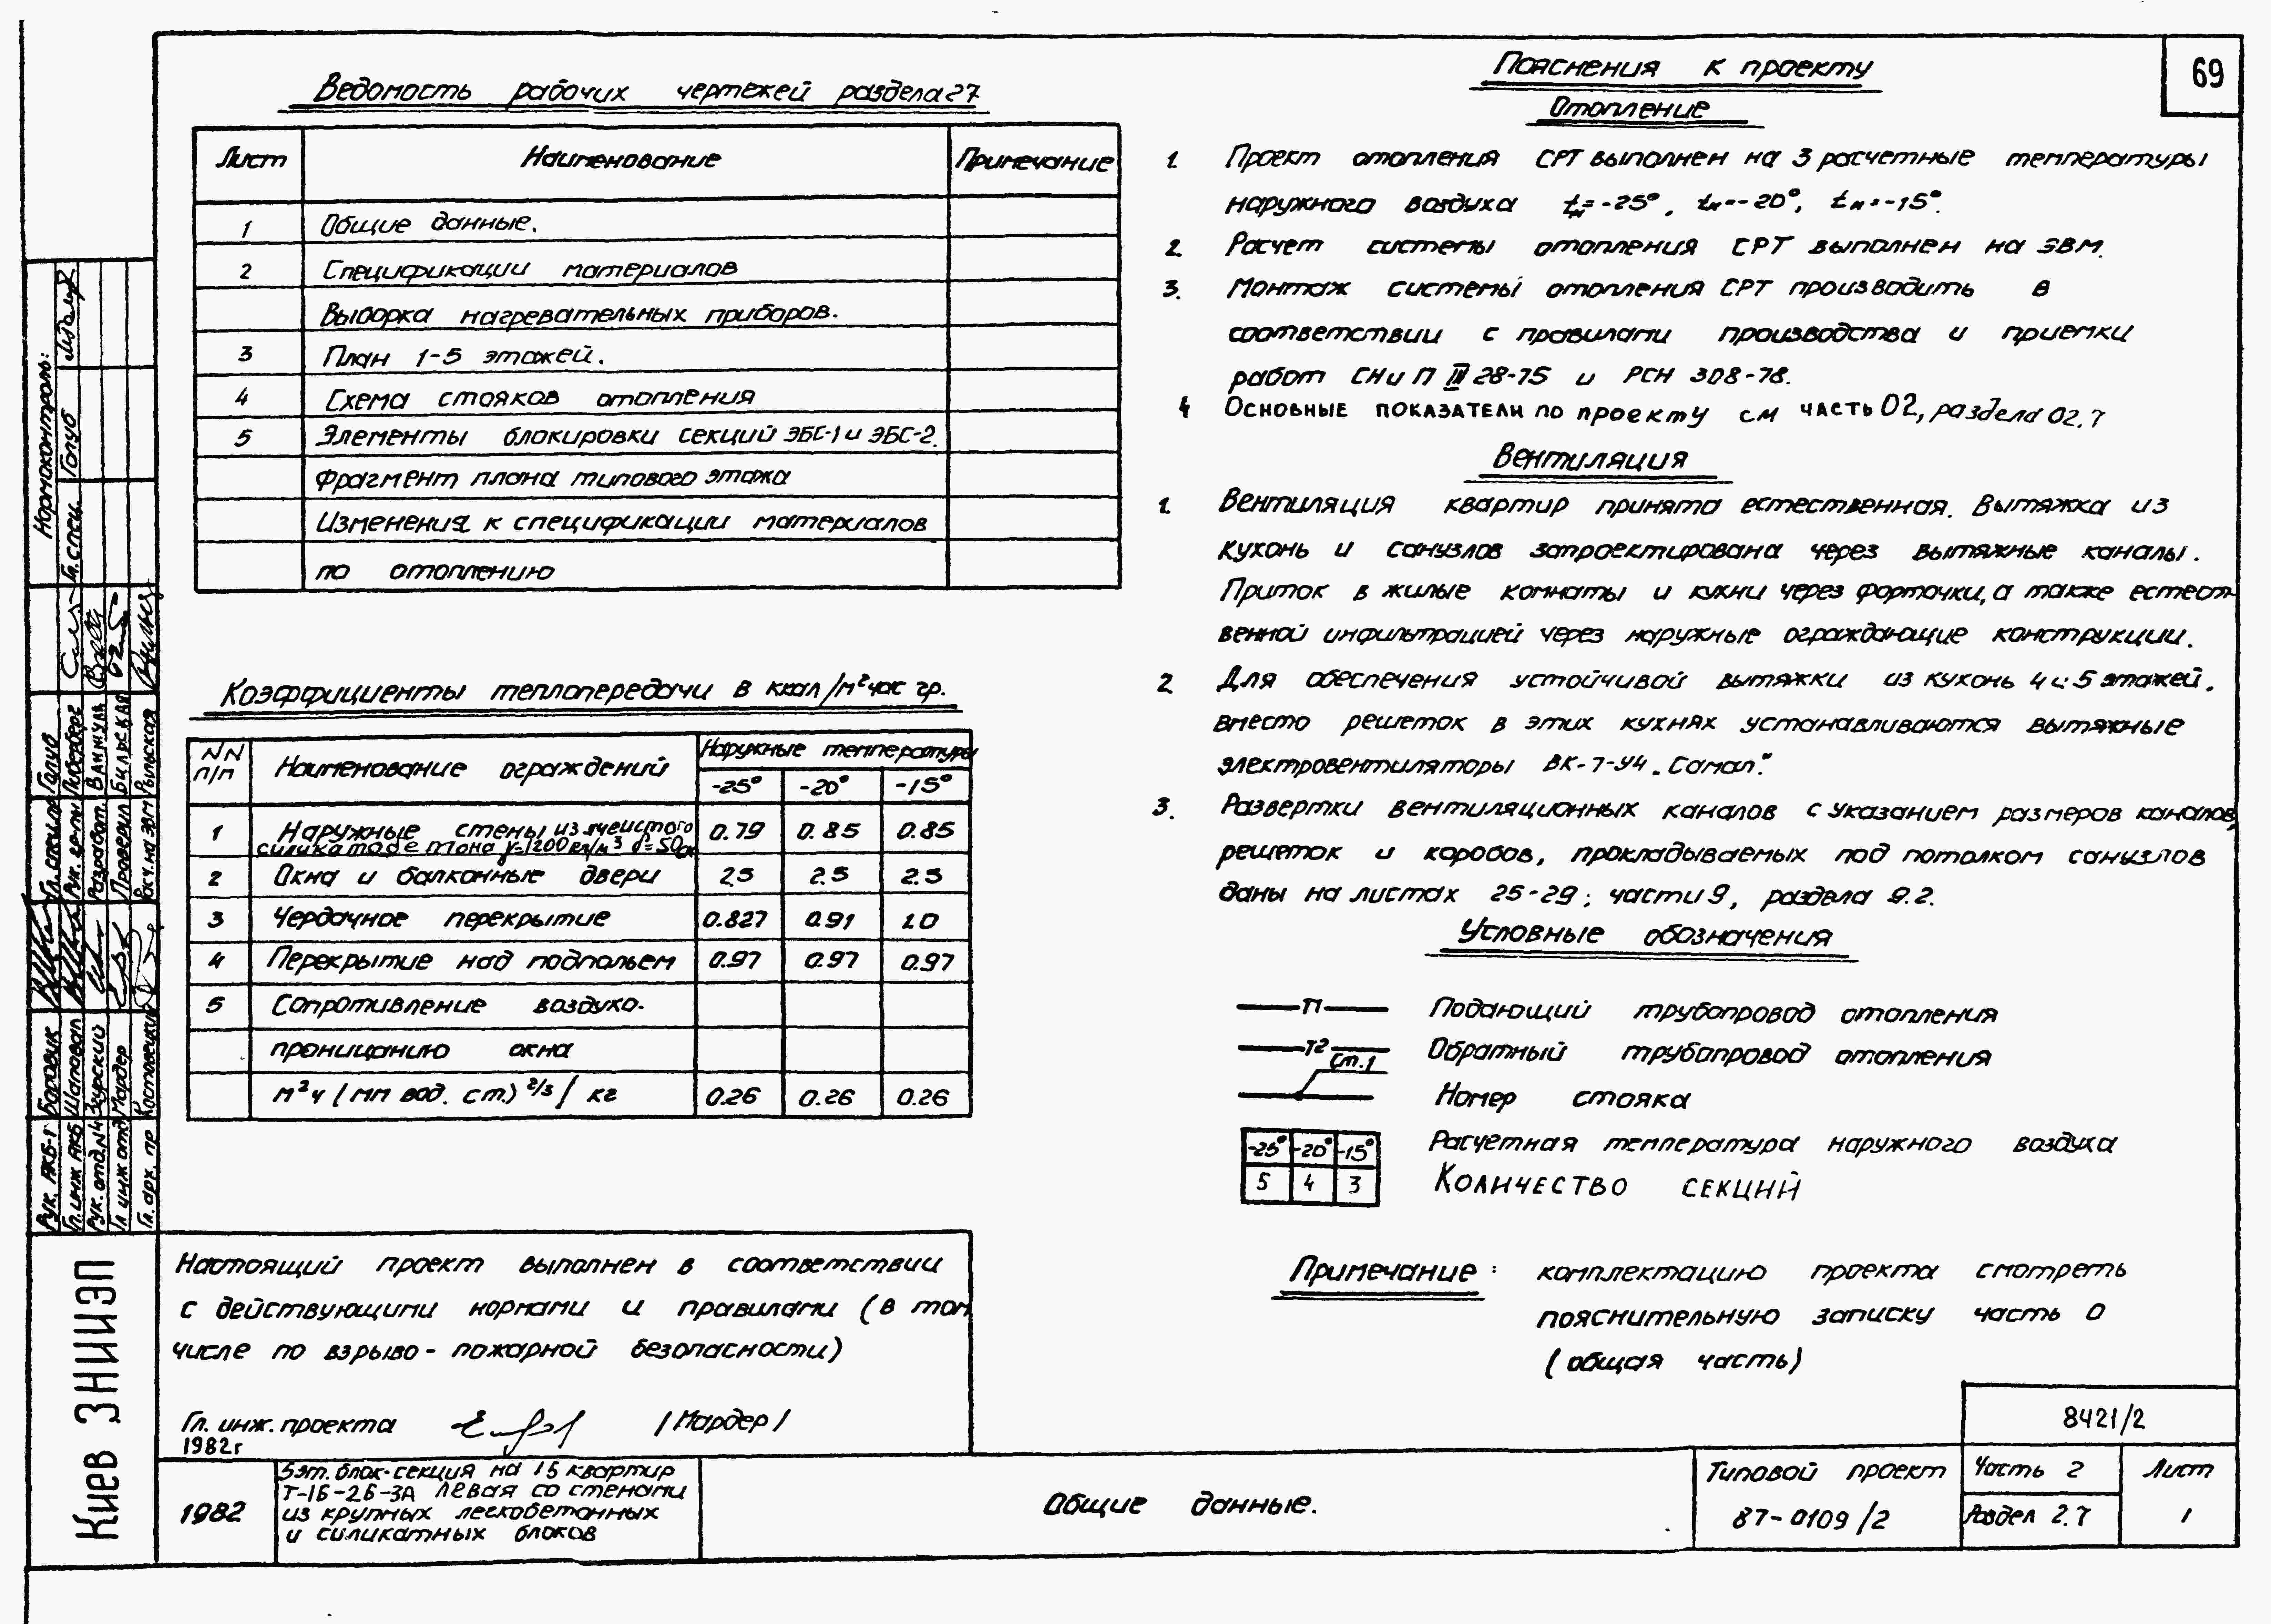 69
Ведомость рабочих чертежей раздела 27
Лист Наименование Примечание
1 Общие данные.
2 Спецификации материалов
Выборка нагревательных приборов.
3 План 1-5 этажей.
4 Схема стояков отопления
5 Элементы блокировки секций ЭБС-1 и ЭБС-2.
Фрагмент плана типового этажа
Изменения к спецификации материалов
по отоплению
Коэффициенты теплопередачи в ккал/м² час гр.
NN п/п Наименование ограждений Наружные температуры
-25° -20° -15°
1 Наружные стены из ячеистого 0.79 0.85 0.85
силикатобетона γ=1200 кг/м³ δ=50см
2 Окна и балконные двери 2.5 2.5 2.5
3 Чердачное перекрытие 0.827 0.91 1.0
4 Перекрытие над подпольем 0.97 0.97 0.97
5 Сопротивление воздухо-
проницанию окна
м² ч (мм вод. ст.) 2/3 / кг 0.26 0.26 0.26
Пояснения к проекту
Отопление
1. Проект отопления СРТ выполнен на 3 расчетные температуры
наружного воздуха tн=-25°, tн=-20°, tн=-15°.
2. Расчет системы отопления СРТ выполнен на ЭВМ.
3. Монтаж системы отопления СРТ производить в
соответствии с правилами производства и приемки
работ СНиП III 28-75 и РСН 308-78.
4 Основные показатели по проекту см часть 02, раздела 02.7
Вентиляция
1. Вентиляция квартир принята естественная. Вытяжка из
кухонь и санузлов запроектирована через вытяжные каналы.
Приток в жилые комнаты и кухни через форточки, а также естест-
венной инфильтрацией через наружные ограждающие конструкции.
2. Для обеспечения устойчивой вытяжки из кухонь 4 и 5 этажей.
вместо решеток в этих кухнях устанавливаются вытяжные
электровентиляторы ВК-7-У4 „Самал".
3. Развертки вентиляционных каналов с указанием размеров каналов,
решеток и коробов, прокладываемых под потолком санузлов
даны на листах 25-29; части 9, раздела 9.2.
Условные обозначения
Т1 Подающий трубопровод отопления
Т2 Обратный трубопровод отопления
Ст.1 Номер стояка
-25° -20° -15° Расчетная температура наружного воздуха
5 4 3 Количество секций
Примечание: комплектацию проекта смотреть
пояснительную записку часть 0
(общая часть)
Настоящий проект выполнен в соответствии
с действующими нормами и правилами (в том
числе по взрыво-пожарной безопасности)
Гл. инж. проекта /Мардер/
1982г
1982
5эт. блок-секция на 15 квартир
Т-1Б-2Б-3А левая со стенами
из крупных легкобетонных
и силикатных блоков
Общие данные.
Типовой проект
87-0109/2
8421/2
Часть 2
Раздел 2.7
Лист
1
Киев ЗНИИЭП
Рук. АКБ-1 Боровик
Гл. инж АКБ Шаповал
Рук. отд. N4 Згурский
Гл инж отд Мардер
Гл. арх. пр
Гл. спец. ор Голуб
Рук. гр-пы Либерберг
Разработ. Ванжула
Проверил Бильская
Расч. на ЭВМ Рыльская
Нормоконтроль:
Гл. спец. Голуб